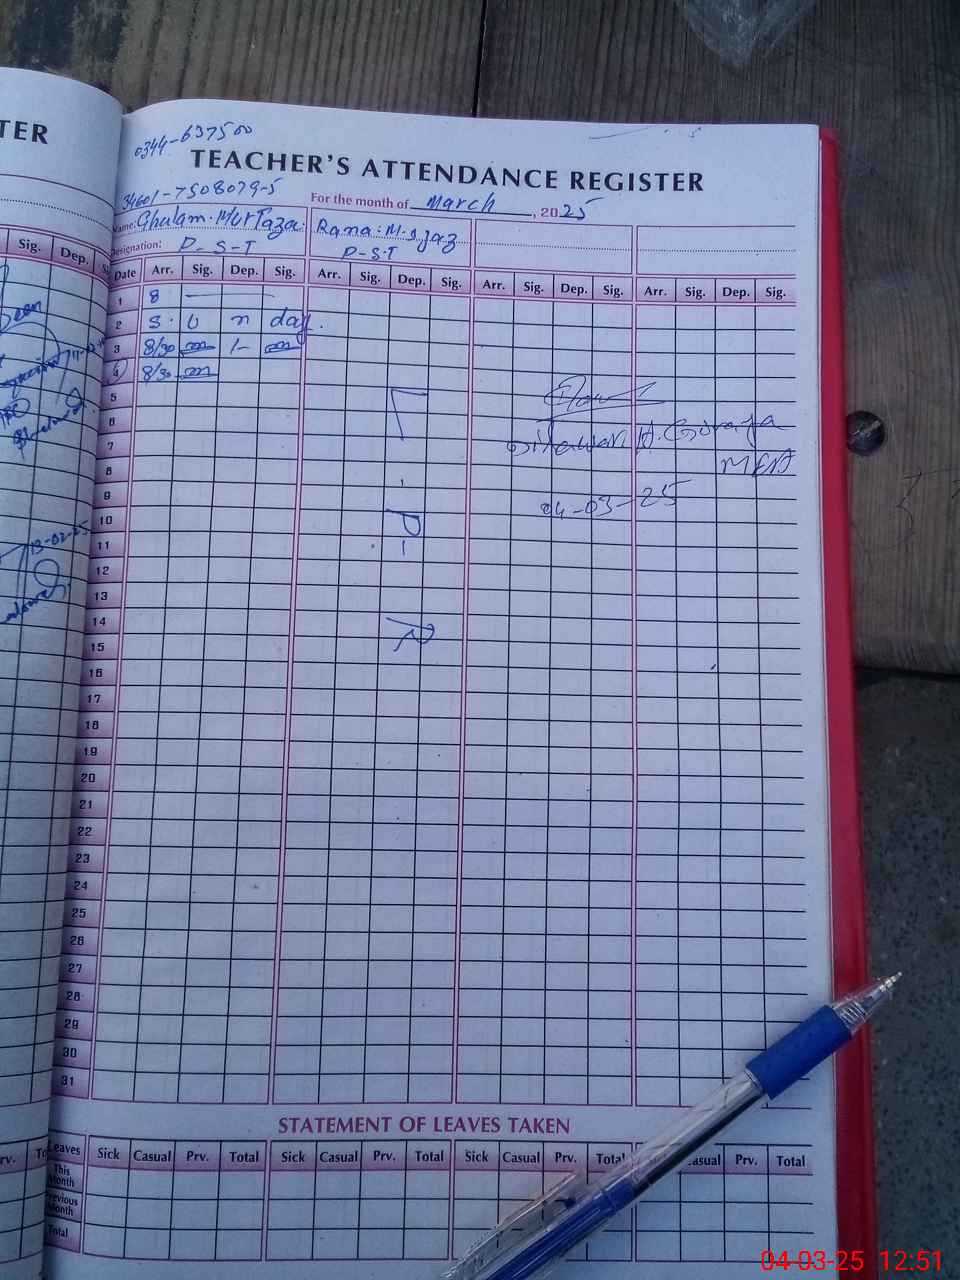 TER
0344-637500
TEACHER'S ATTENDANCE REGISTER
34601-7508079-5
For the month of March, 2025
Name: Ghulam Murtaza Rana M.Ijaz
Designation: P-S-T P-S-T
Sig. Dep.
Date Arr. Sig. Dep. Sig. Arr. Sig. Dep. Sig. Arr. Sig. Dep. Sig. Arr. Sig. Dep. Sig.
1 8
2 S u n day.
3 8/30 1-
4 8/30
5
6
7
8 MEA
9
04-03-25
10
11
13-02-25
12
13
14
15
16
17
18
19
20
21
22
23
24
25
26
27
28
29
30
31
STATEMENT OF LEAVES TAKEN
Leaves Sick Casual Prv. Total Sick Casual Prv. Total Sick Casual Prv. Total Casual Prv. Total
This Month
Previous Month
Total
04-03-25 12:51